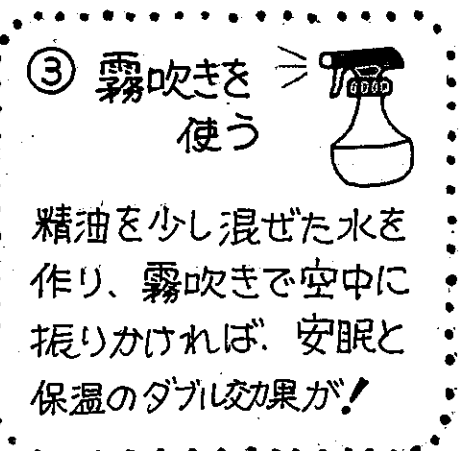 ③ 霧吹きを
使う
精油を少し混ぜた水を
作り、霧吹きで空中に
振りかければ、安眠と
保温のダブル効果が!